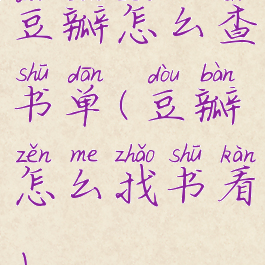 豆瓣怎么查
shū dān dòu bàn
书单(豆瓣
zěn me zhǎo shū kàn
怎么找书看